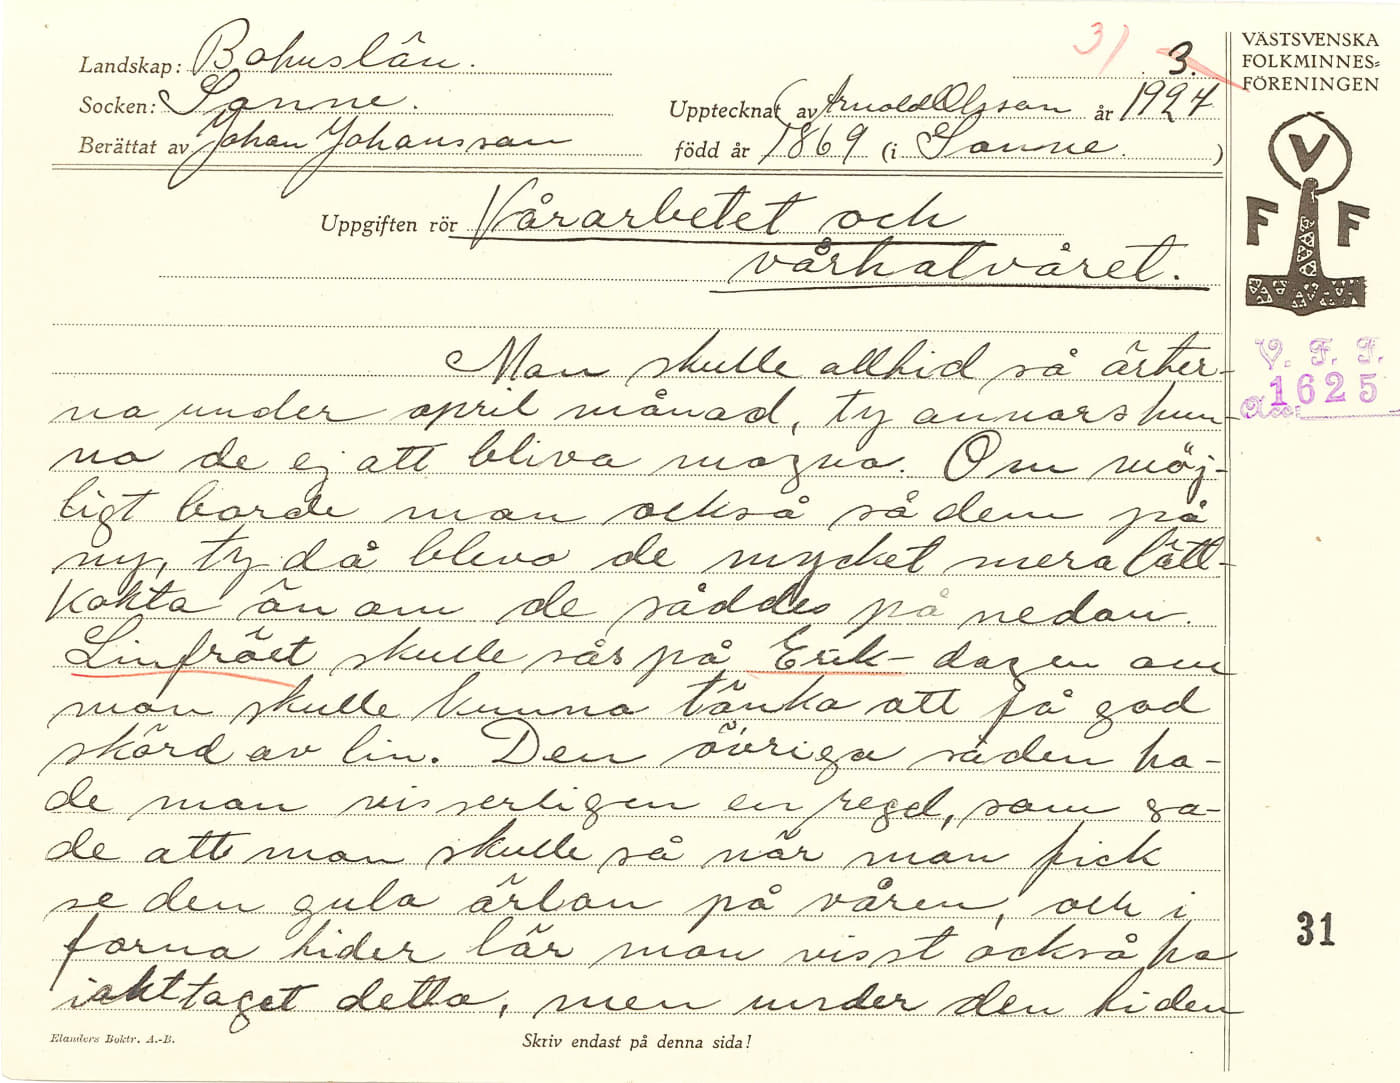 Landskap: Bohuslän.
Socken: Sanne.
Berättat av Johan Johansson
31
3.
Upptecknat av Arnold Olsson år 1924
född år 1869 (i Sanne. )
VÄSTSVENSKA
FOLKMINNES=
FÖRENINGEN
V
F F
V. F. F.
Acc: 1625
Uppgiften rör Vårarbetet och
vårhalvåret.
Man skulle alltid så ärter-
na under april månad, ty annars hun-
no de ej att bliva mogna. Om möj-
ligt borde man också så dem på
ny, ty då blevo de mycket mera lätt-
kokta än om de såddes på nedan.
Linfröet skulle sås på Erik-dagen om
man skulle kunna tänka att få god
skörd av lin. Den övriga säden ha-
de man visserligen en regel, som sa-
de att man skulle så när man fick
se den gula ärlan på våren, och i
forna tider lär man visst också ha
iakttaget detta, men under den tiden
31
Elanders Boktr. A.-B.
Skriv endast på denna sida!